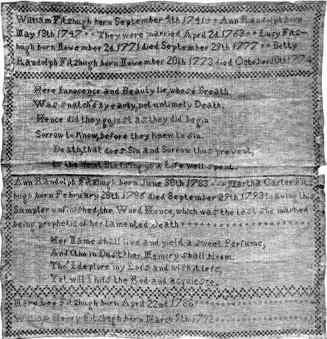 William Fitzhugh born September 4th 1741 Ann Randolph born
May 18th 1747 They were married April 2d 1763 Lucy Fitz-
hugh born November 2d 1771 died September 29th 1777 Betty
Randolph Fitzhugh born November 20th 1773 died October 10th 1774
Here Innocence and Beauty lie, whose Breath
Was snatch'd by early, yet untimely Death.
Hence did they go, just as they did begin
Sorrow to know, before they knew to sin.
Death, that does Sin and Sorrow thus prevent,
Is the Next Blessing to a Life well spent.
Ann Randolph Fitzhugh born June 1783 Martha Carter Fitz
hugh born February 28th 1786 died September 27th leaving this
Sampler unfinished, the Word Hence, which was the last she marked
being prophetic of her lamented death
Her Name shall live and yield a sweet Perfume,
And tho in Dust her Memory shall bloom.
Tho' I deplore my Loss and wish it less,
Yet will I kiss the Rod and acquiesce.
Mary Lee Fitzhugh born April 22nd 1788
William Henry Fitzhugh born March 9th 1792